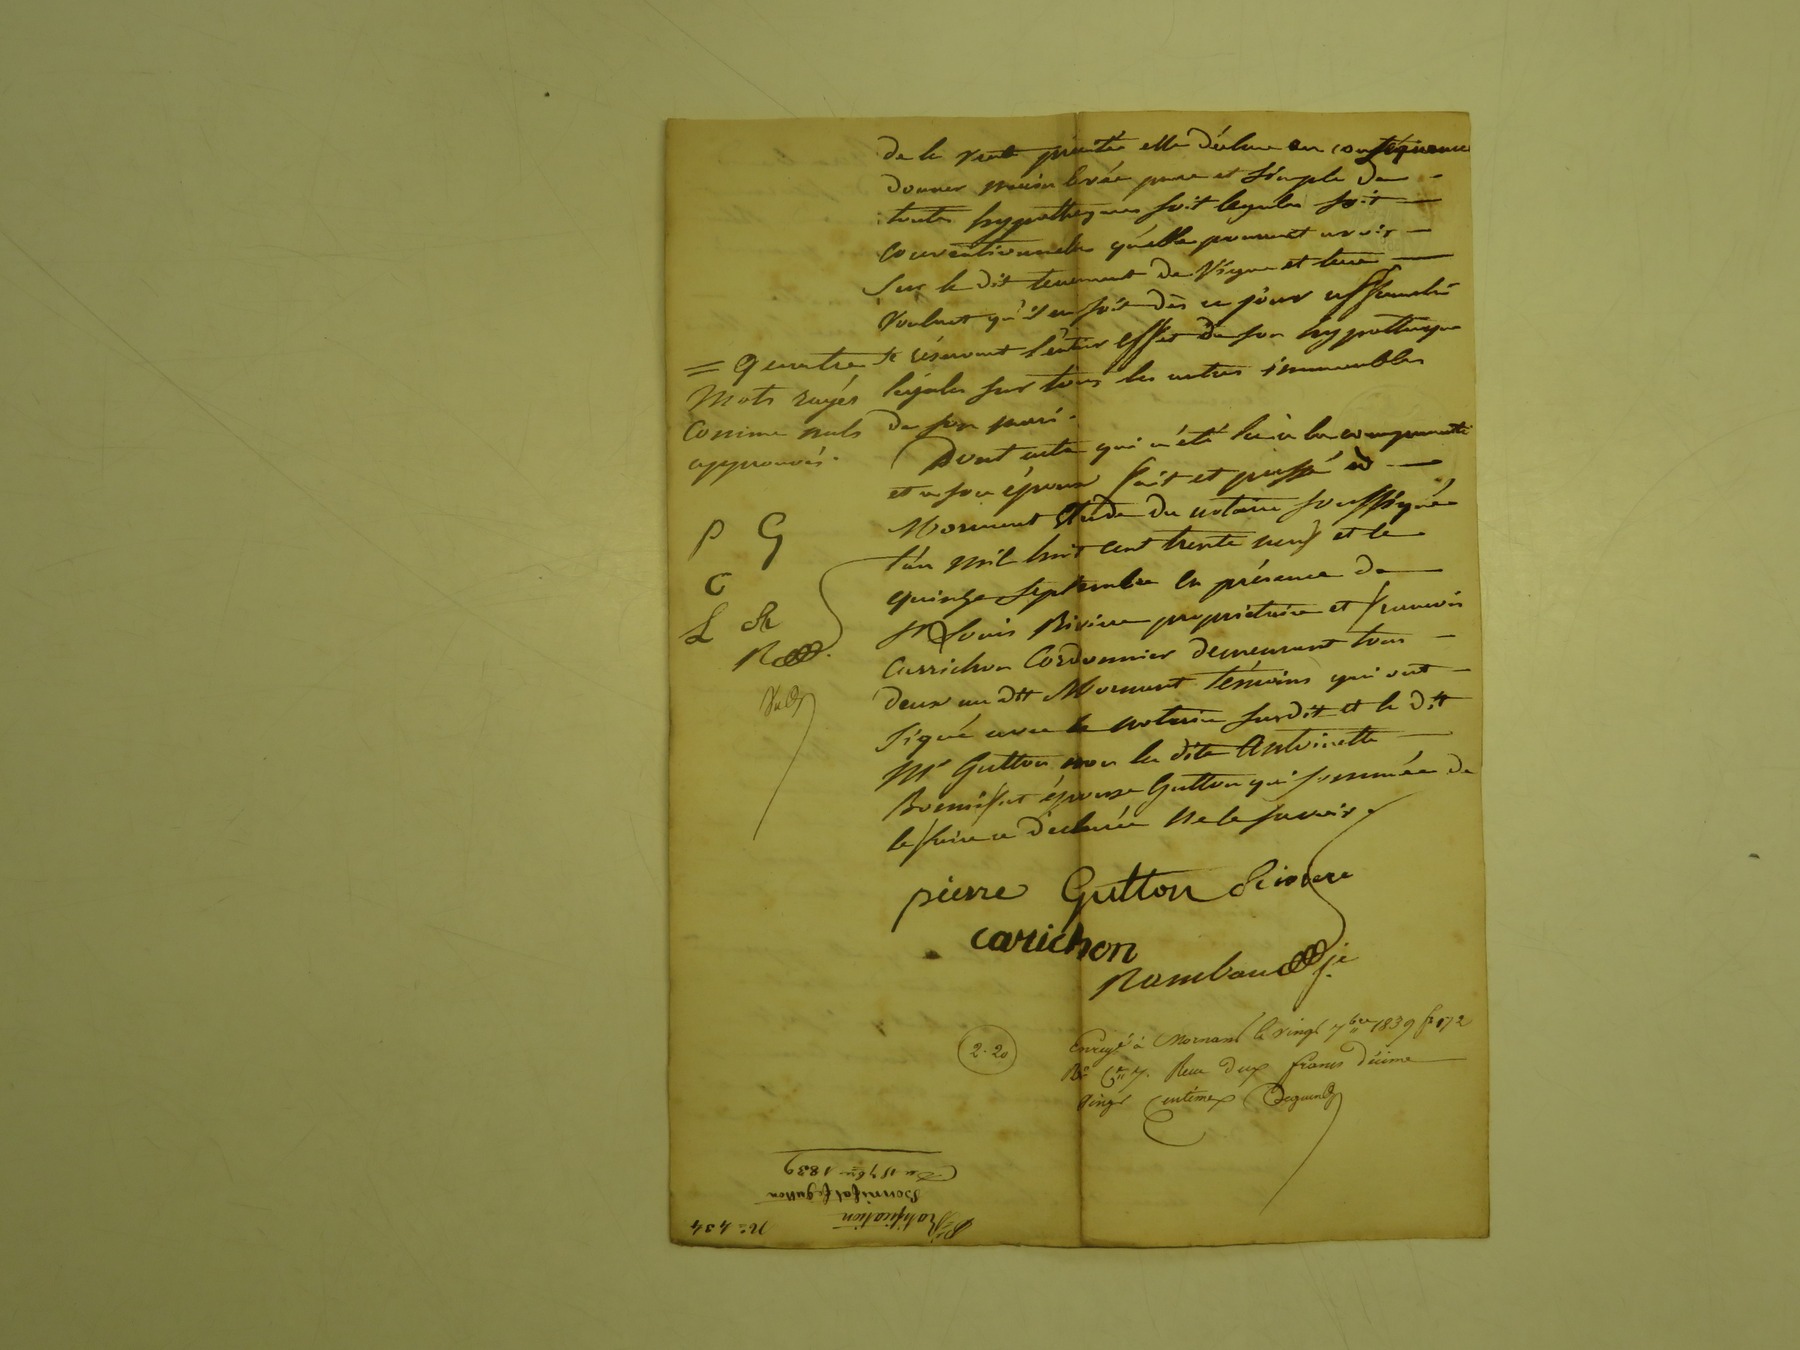 de la vente précitée elle déclare en conséquence
donner main levée pure et simple de
toutes hypothèques soit legales soit
conventionnelles qu'elle pourrait avoir
sur le dit tenement de vigne et terre
voulant qu'il en soit dès ce jour affranchi
se réservant l'entier effet de son hypothèque
légale sur tous les autres immeubles
de son mari.
= Quatre
Mots rayés
comme nuls
approuvés.
Dont acte qui a été lu à la comparante
et a son époux fait et passé à
Mornant Etude du notaire soussigné
l'an mil huit cent trente neuf et le
quinze septembre en présence de
Sr Louis Riviere propriétaire et françois
Carrichon Cordonnier demeurant tous
deux au dit Mornant témoins qui ont
signé avec le notaire susdit et le dit
Mr Gutton non la dite Antoinette
Bonnifat épouse Gutton qui sommée de
le faire a déclarée ne le savoir.
P G
C
L R
R
pierre Gutton Riviere
carichon
Rambaud
2.20
Enregé à Mornant le vingt 7bre 1839 fo 172
Ro Ce 7. Recu deux francs décime
vingt centimes
Du 15 7bre 1839
Bonnifat fe gutton
Ratification
No 434